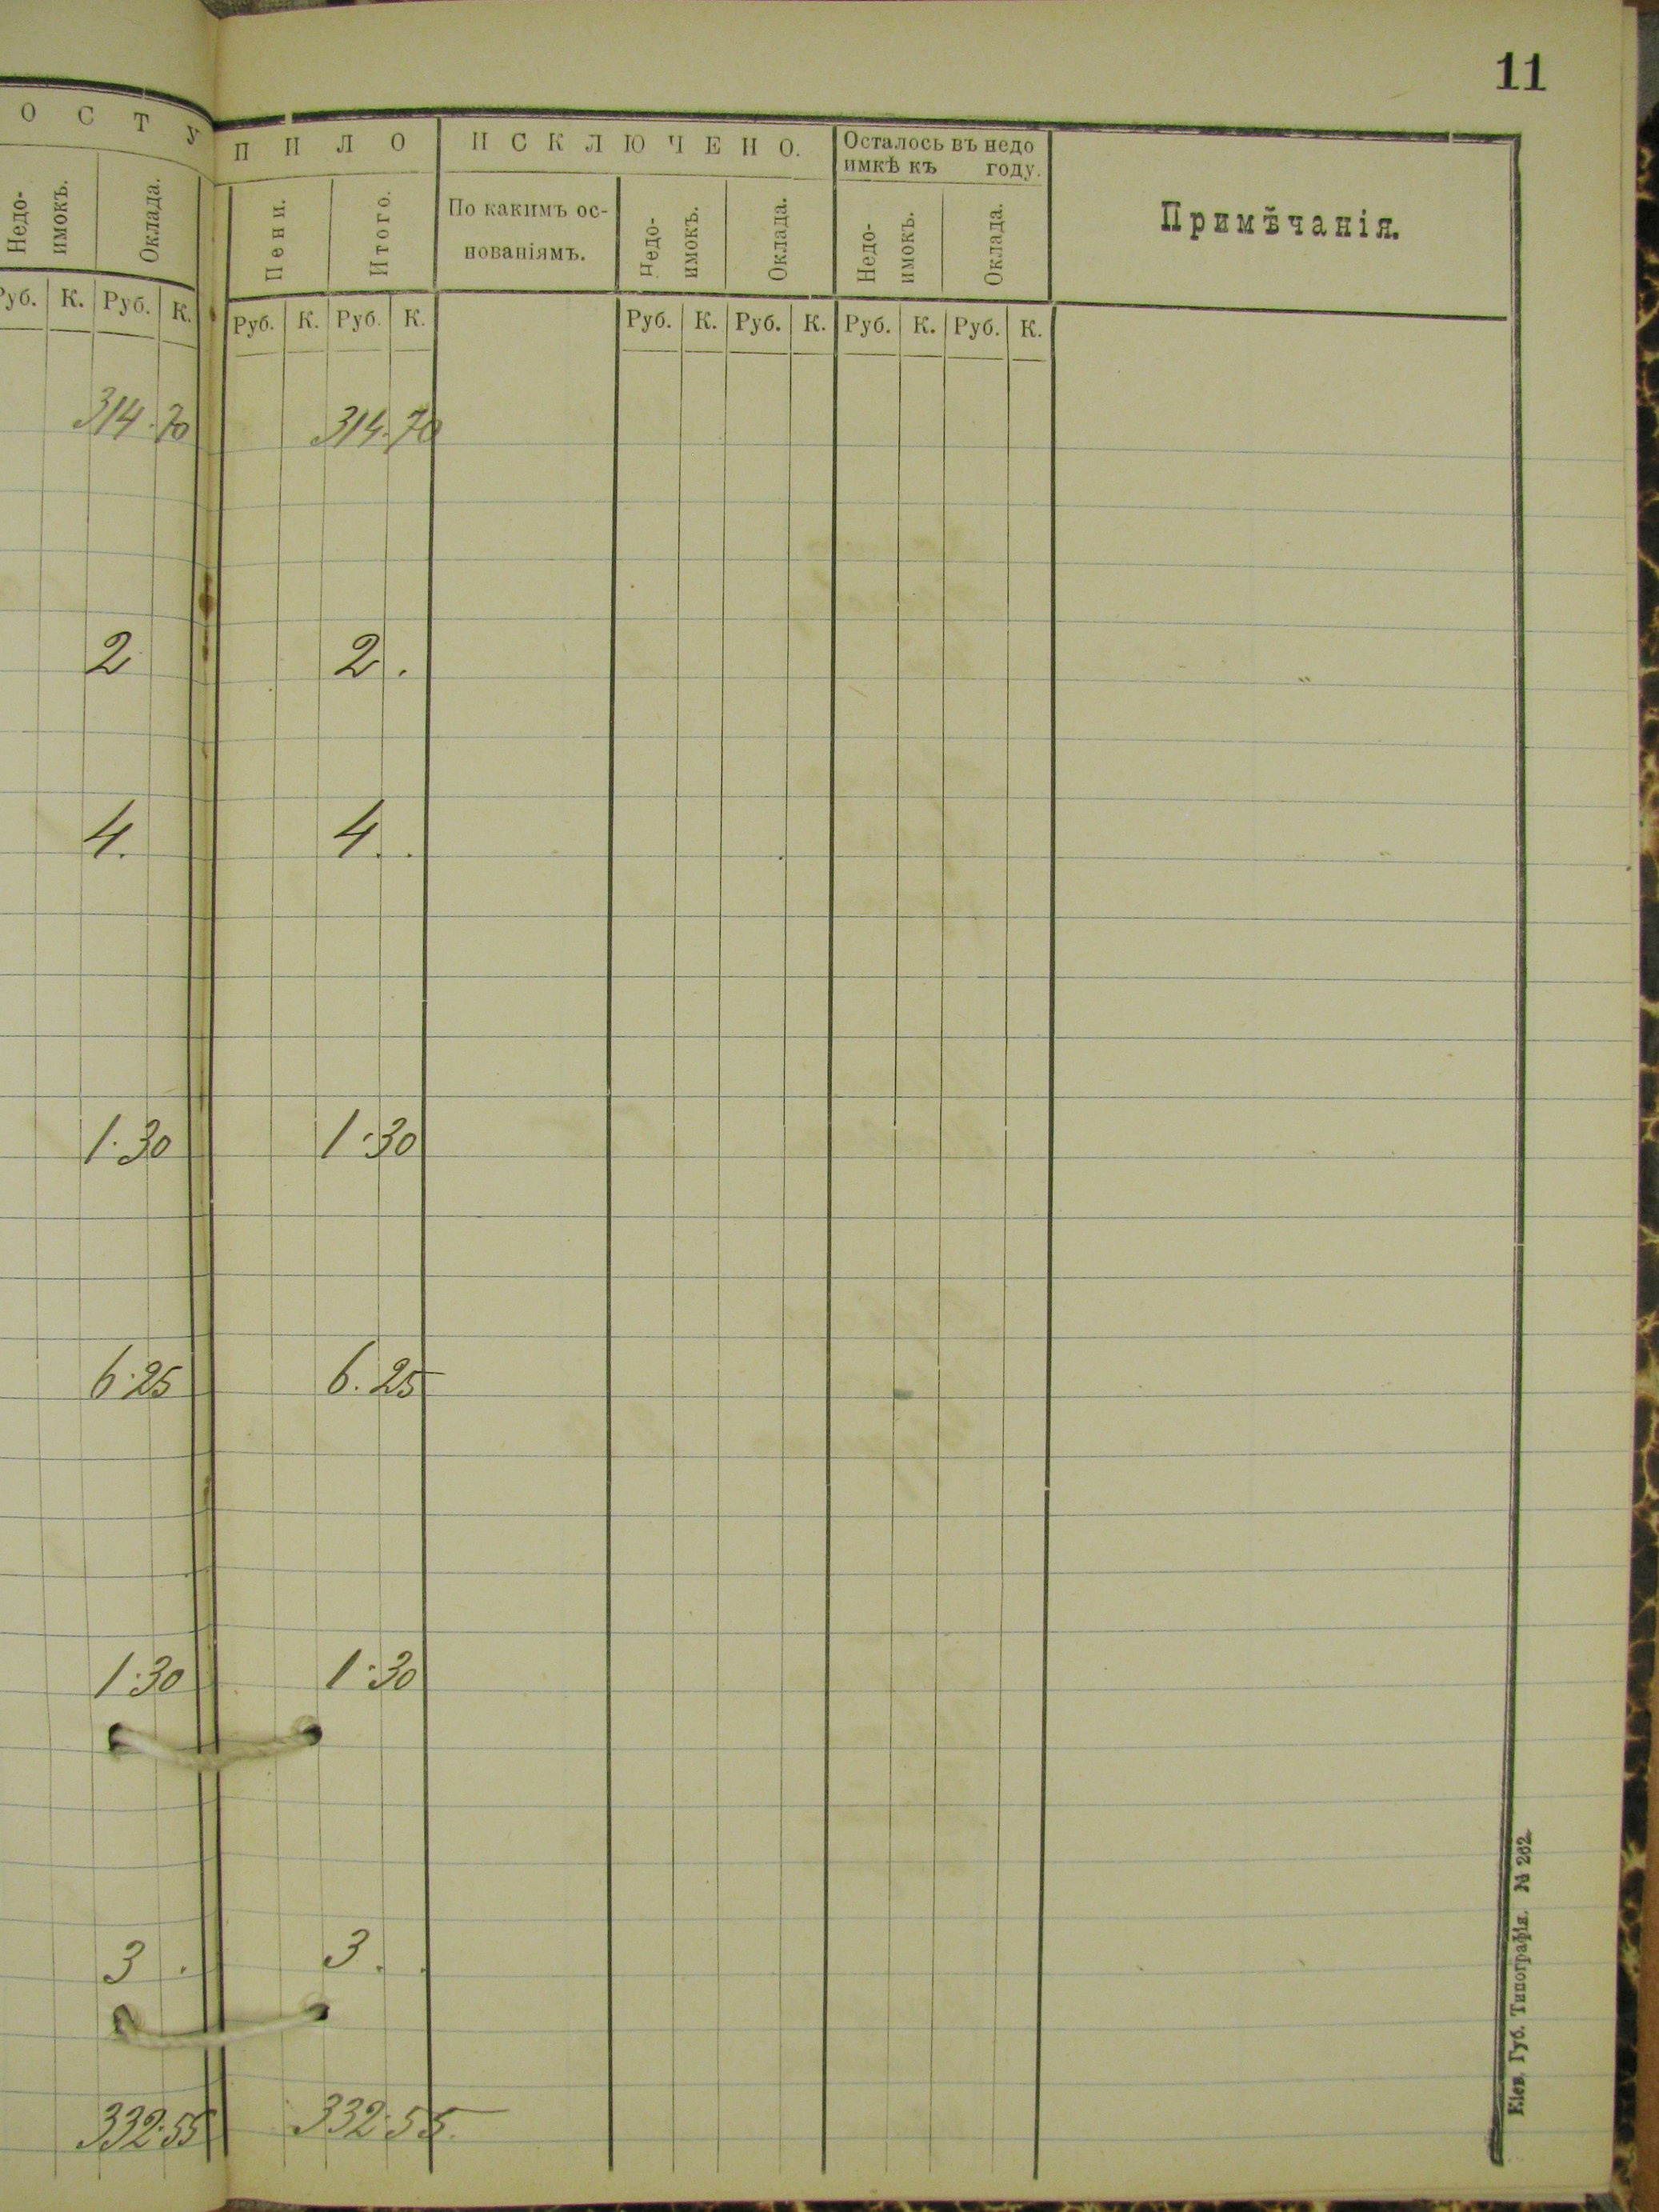 11
ОСТУПИЛО ИСКЛЮЧЕНО. Осталось въ недо
имкѣ къ году. Примѣчанія.
Недо-
имокъ. Оклада. Пени. Итого. По какимъ ос-
нованіямъ. Недо-
имокъ. Оклада. Недо-
имокъ. Оклада.
Руб. К. Руб. К. Руб. К. Руб. К. Руб. К. Руб. К. Руб. К. Руб. К.
314.70 314.70
2 2.
4. 4..
1.30 1.30
6.25 6.25
1.30 1.30
3. 3..
332.55 332.55.
Кіев. Губ. Типографія. № 262